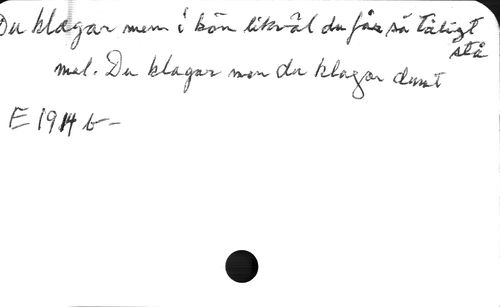 Du klagar men i bön likväl du får så tåligt
stå
mal. Du klagar men du klagar dumt
E 1914 b-